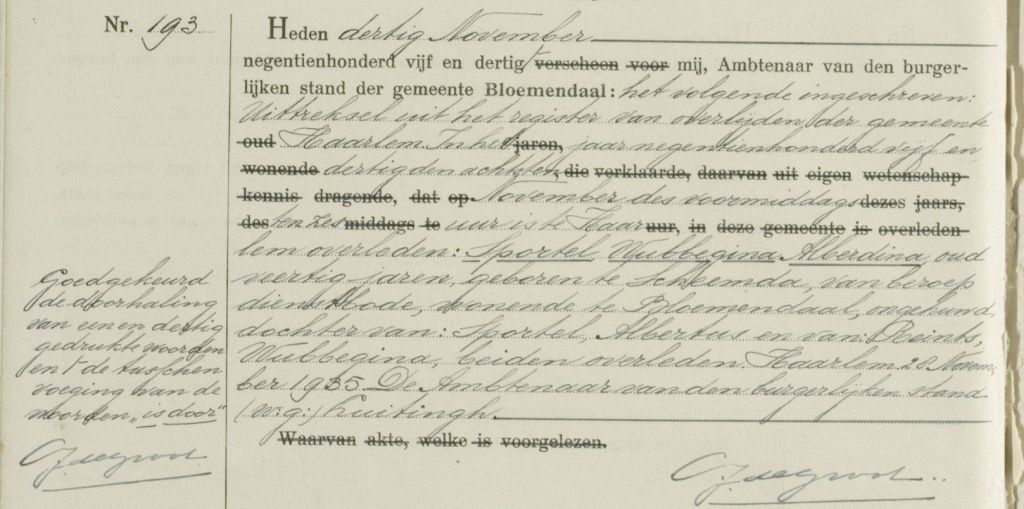 Nr. 193
Heden dertig November
negentienhonderd vijf en dertig verscheen voor mij, Ambtenaar van den burger-
lijken stand der gemeente Bloemendaal: het volgende ingeschreven:
Uittreksel uit het register van overlijden der gemeente
oud Haarlem. In het jaren, jaar negentienhonderd vijf en
wonende dertig den achtsten, die verklaarde, daarvan uit eigen wetenschap
kennis dragende, dat op November des voormiddags dezes jaars,
des ten zes middags te uur is te Haar uur, in deze gemeente is overleden
lem overleden: Sportel, Wubbegina Alberdina, oud
veertig jaren, geboren te Scheemda, van beroep
dienstbode, wonende te Bloemendaal, ongehuwd,
dochter van: Sportel, Albertus en van: Reints,
Wubbegina, beiden overleden. Haarlem 28 Novem-
ber 1935. De Ambtenaar van den burgerlijken stand
(w.g.) Luitingh.
Waarvan akte, welke is voorgelezen.
Goedgekeurd
de doorhaling
van een en dertig
gedrukte woorden
en de tusschen
voeging van de
woorden "is door"